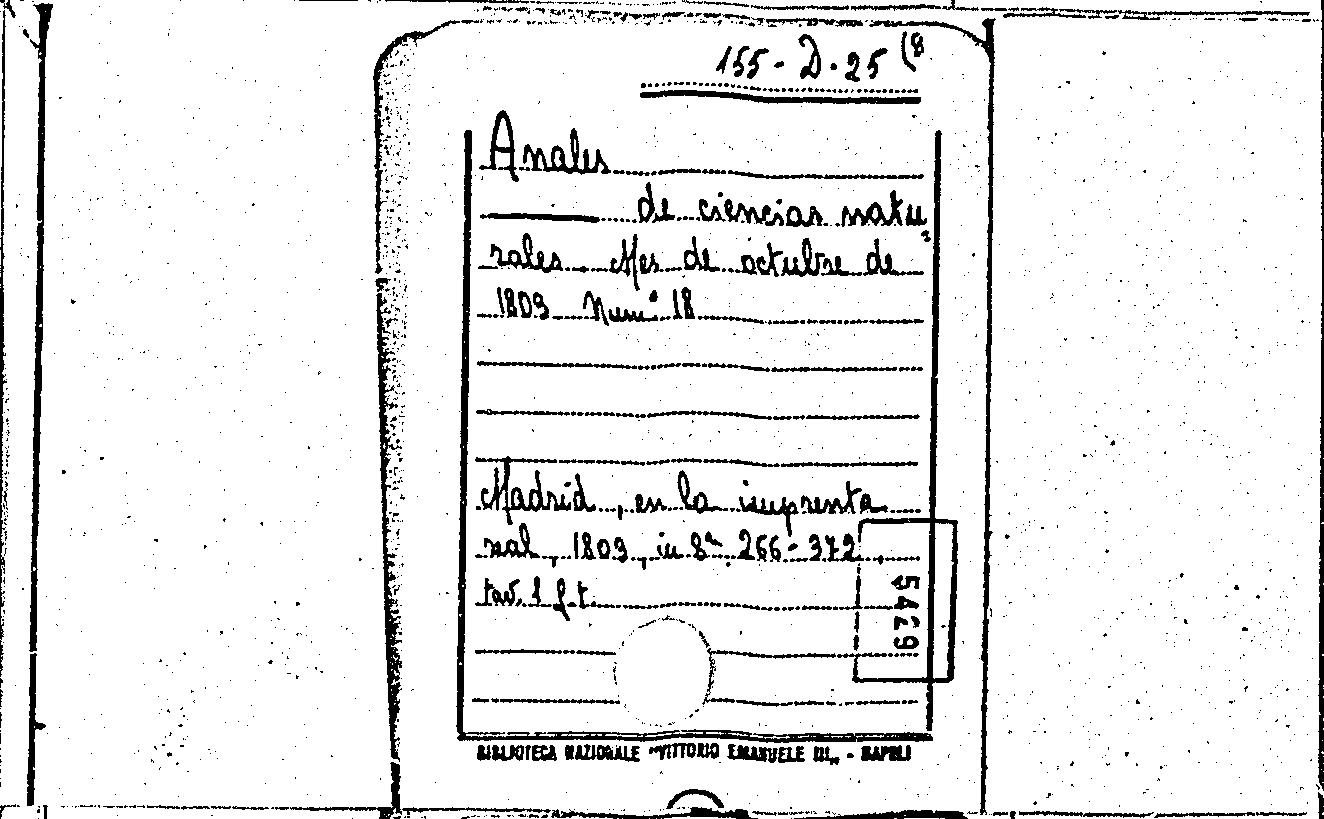 155-D.25 (8
Anales
de ciencias natu
rales. Mes de octubre de
1803 Num.° 18
Madrid, en la imprenta
real, 1803, in 8° 266-372,
tav. 1 f.t.
5429
BIBLIOTECA NAZIONALE "VITTORIO EMANUELE III„ - NAPOLI